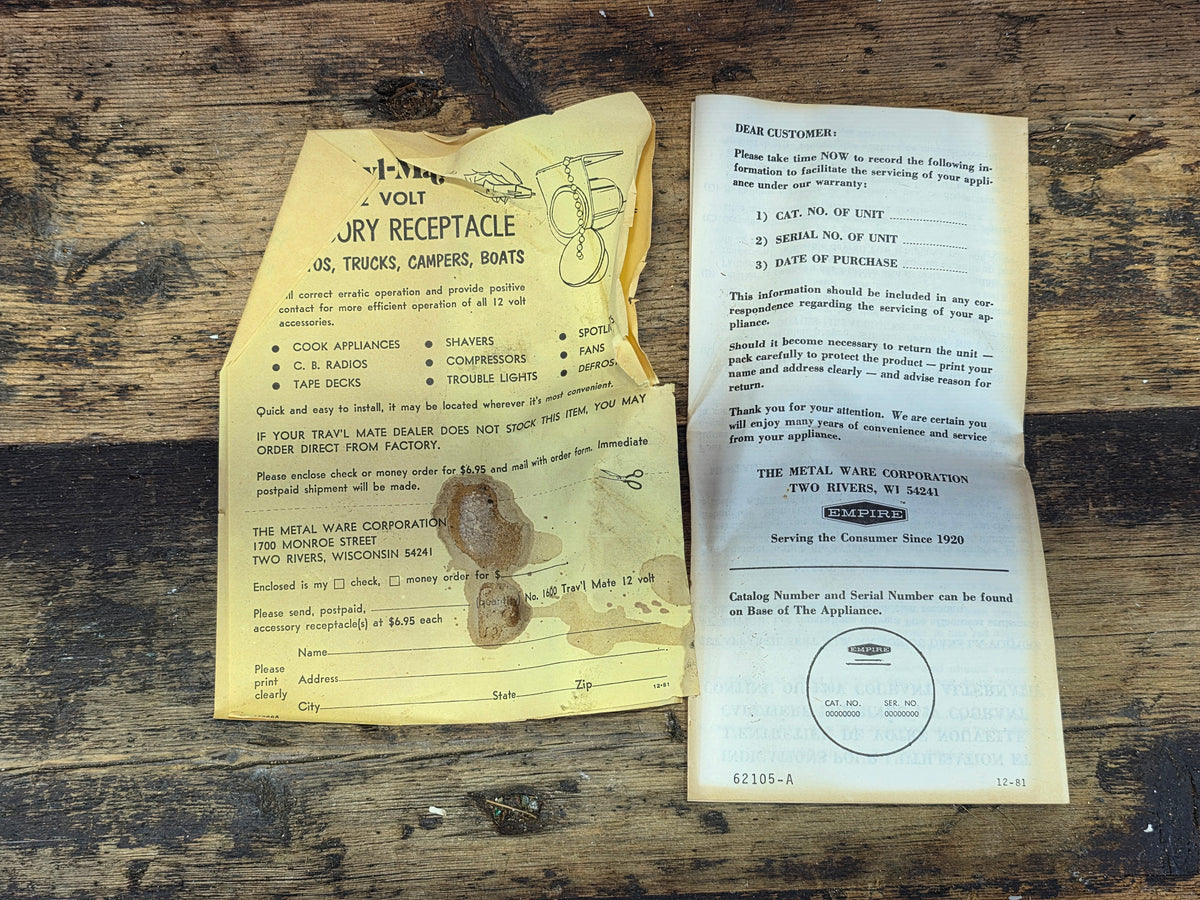 2 VOLT
ORY RECEPTACLE
OS, TRUCKS, CAMPERS, BOATS
correct erratic operation and provide positive
contact for more efficient operation of all 12 volt
accessories.
● COOK APPLIANCES ● SHAVERS ●
● C. B. RADIOS ● COMPRESSORS ● FANS
● TAPE DECKS ● TROUBLE LIGHTS ● DEFROS
Quick and easy to install, it may be located wherever it's most convenient.
IF YOUR TRAV'L MATE DEALER DOES NOT STOCK THIS ITEM, YOU MAY
ORDER DIRECT FROM FACTORY.
Please enclose check or money order for $6.95 and mail with order form. Immediate
postpaid shipment will be made.
THE METAL WARE CORPORATION
1700 MONROE STREET
TWO RIVERS, WISCONSIN 54241
Enclosed is my □ check, □ money order for $
Please send, postpaid, (quantity) No. 1600 Trav'l Mate 12 volt
accessory receptacle(s) at $6.95 each
Please
print
clearly
Name
Address
City State Zip
12-81
DEAR CUSTOMER:
Please take time NOW to record the following in-
formation to facilitate the servicing of your appli-
ance under our warranty:
1) CAT. NO. OF UNIT
2) SERIAL NO. OF UNIT
3) DATE OF PURCHASE
This information should be included in any cor-
respondence regarding the servicing of your ap-
pliance.
Should it become necessary to return the unit —
pack carefully to protect the product — print your
name and address clearly — and advise reason for
return.
Thank you for your attention. We are certain you
will enjoy many years of convenience and service
from your appliance.
THE METAL WARE CORPORATION
TWO RIVERS, WI 54241
EMPIRE
Serving the Consumer Since 1920
Catalog Number and Serial Number can be found
on Base of The Appliance.
EMPIRE
CAT. NO. SER. NO.
00000000 00000000
62105-A 12-81